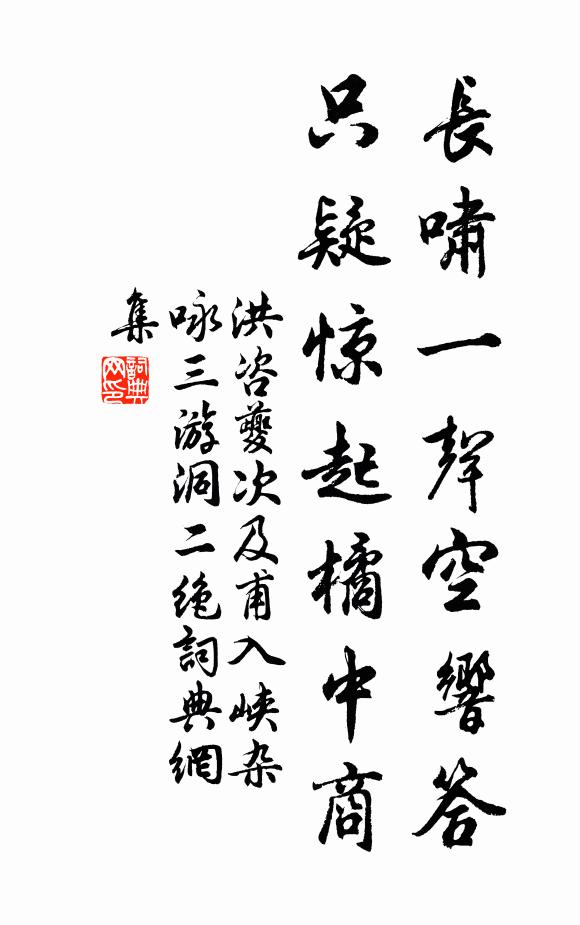 長嘯一聲空響答
只疑惊起橘中商
洪咨夔次及甫入峡杂
咏三游洞二绝詞典網
集
詞典
网印